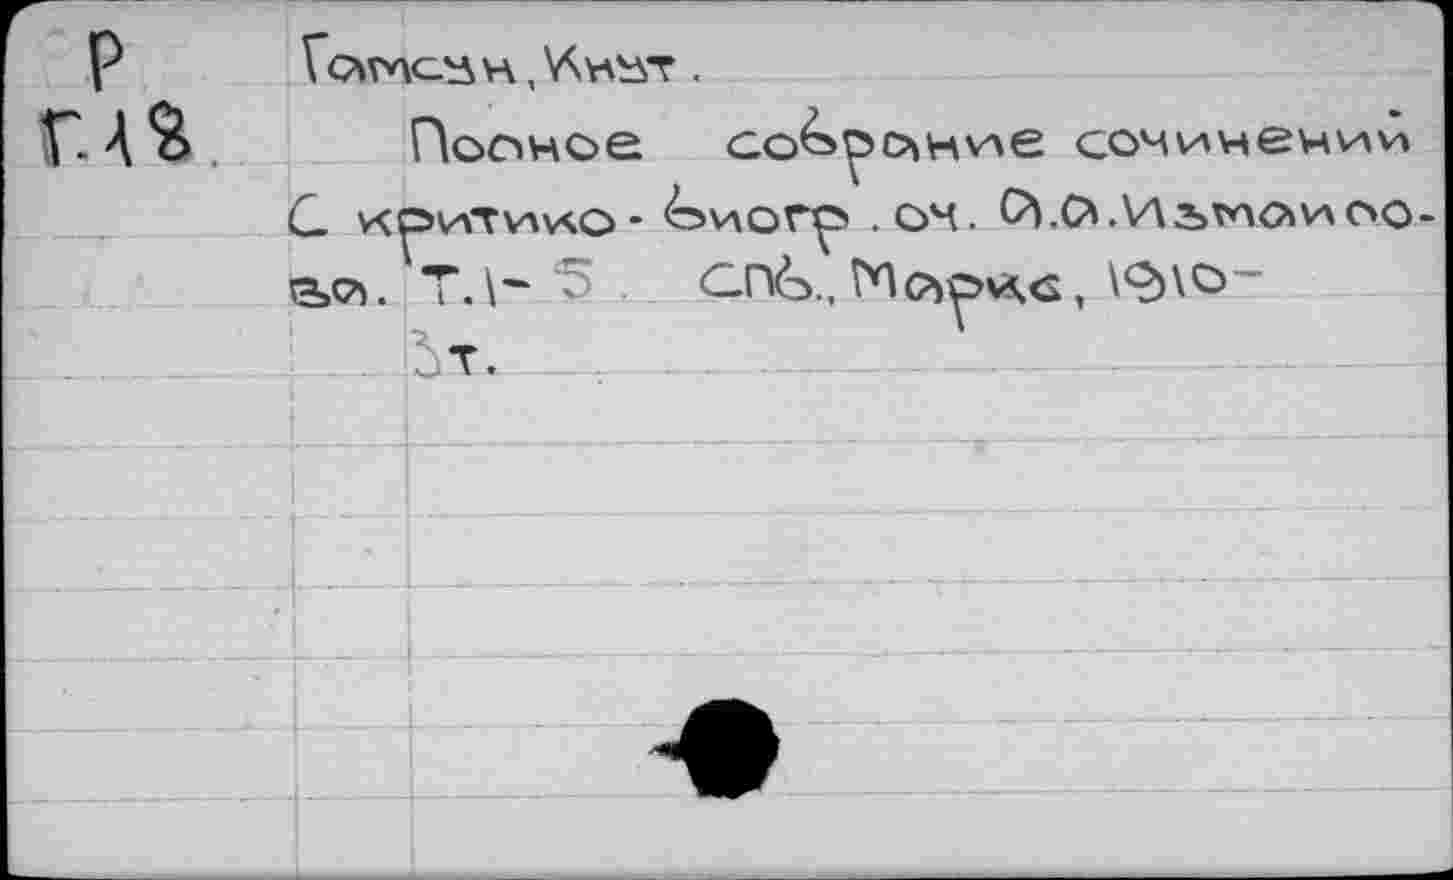 Р Гамсун, Кнут.
Г.18. Полное собрание сочинений
С критико - биогр. оч. А.А.Измайло-
ва. Т.1- 5. СПб., Маркс, 1910-
3т.